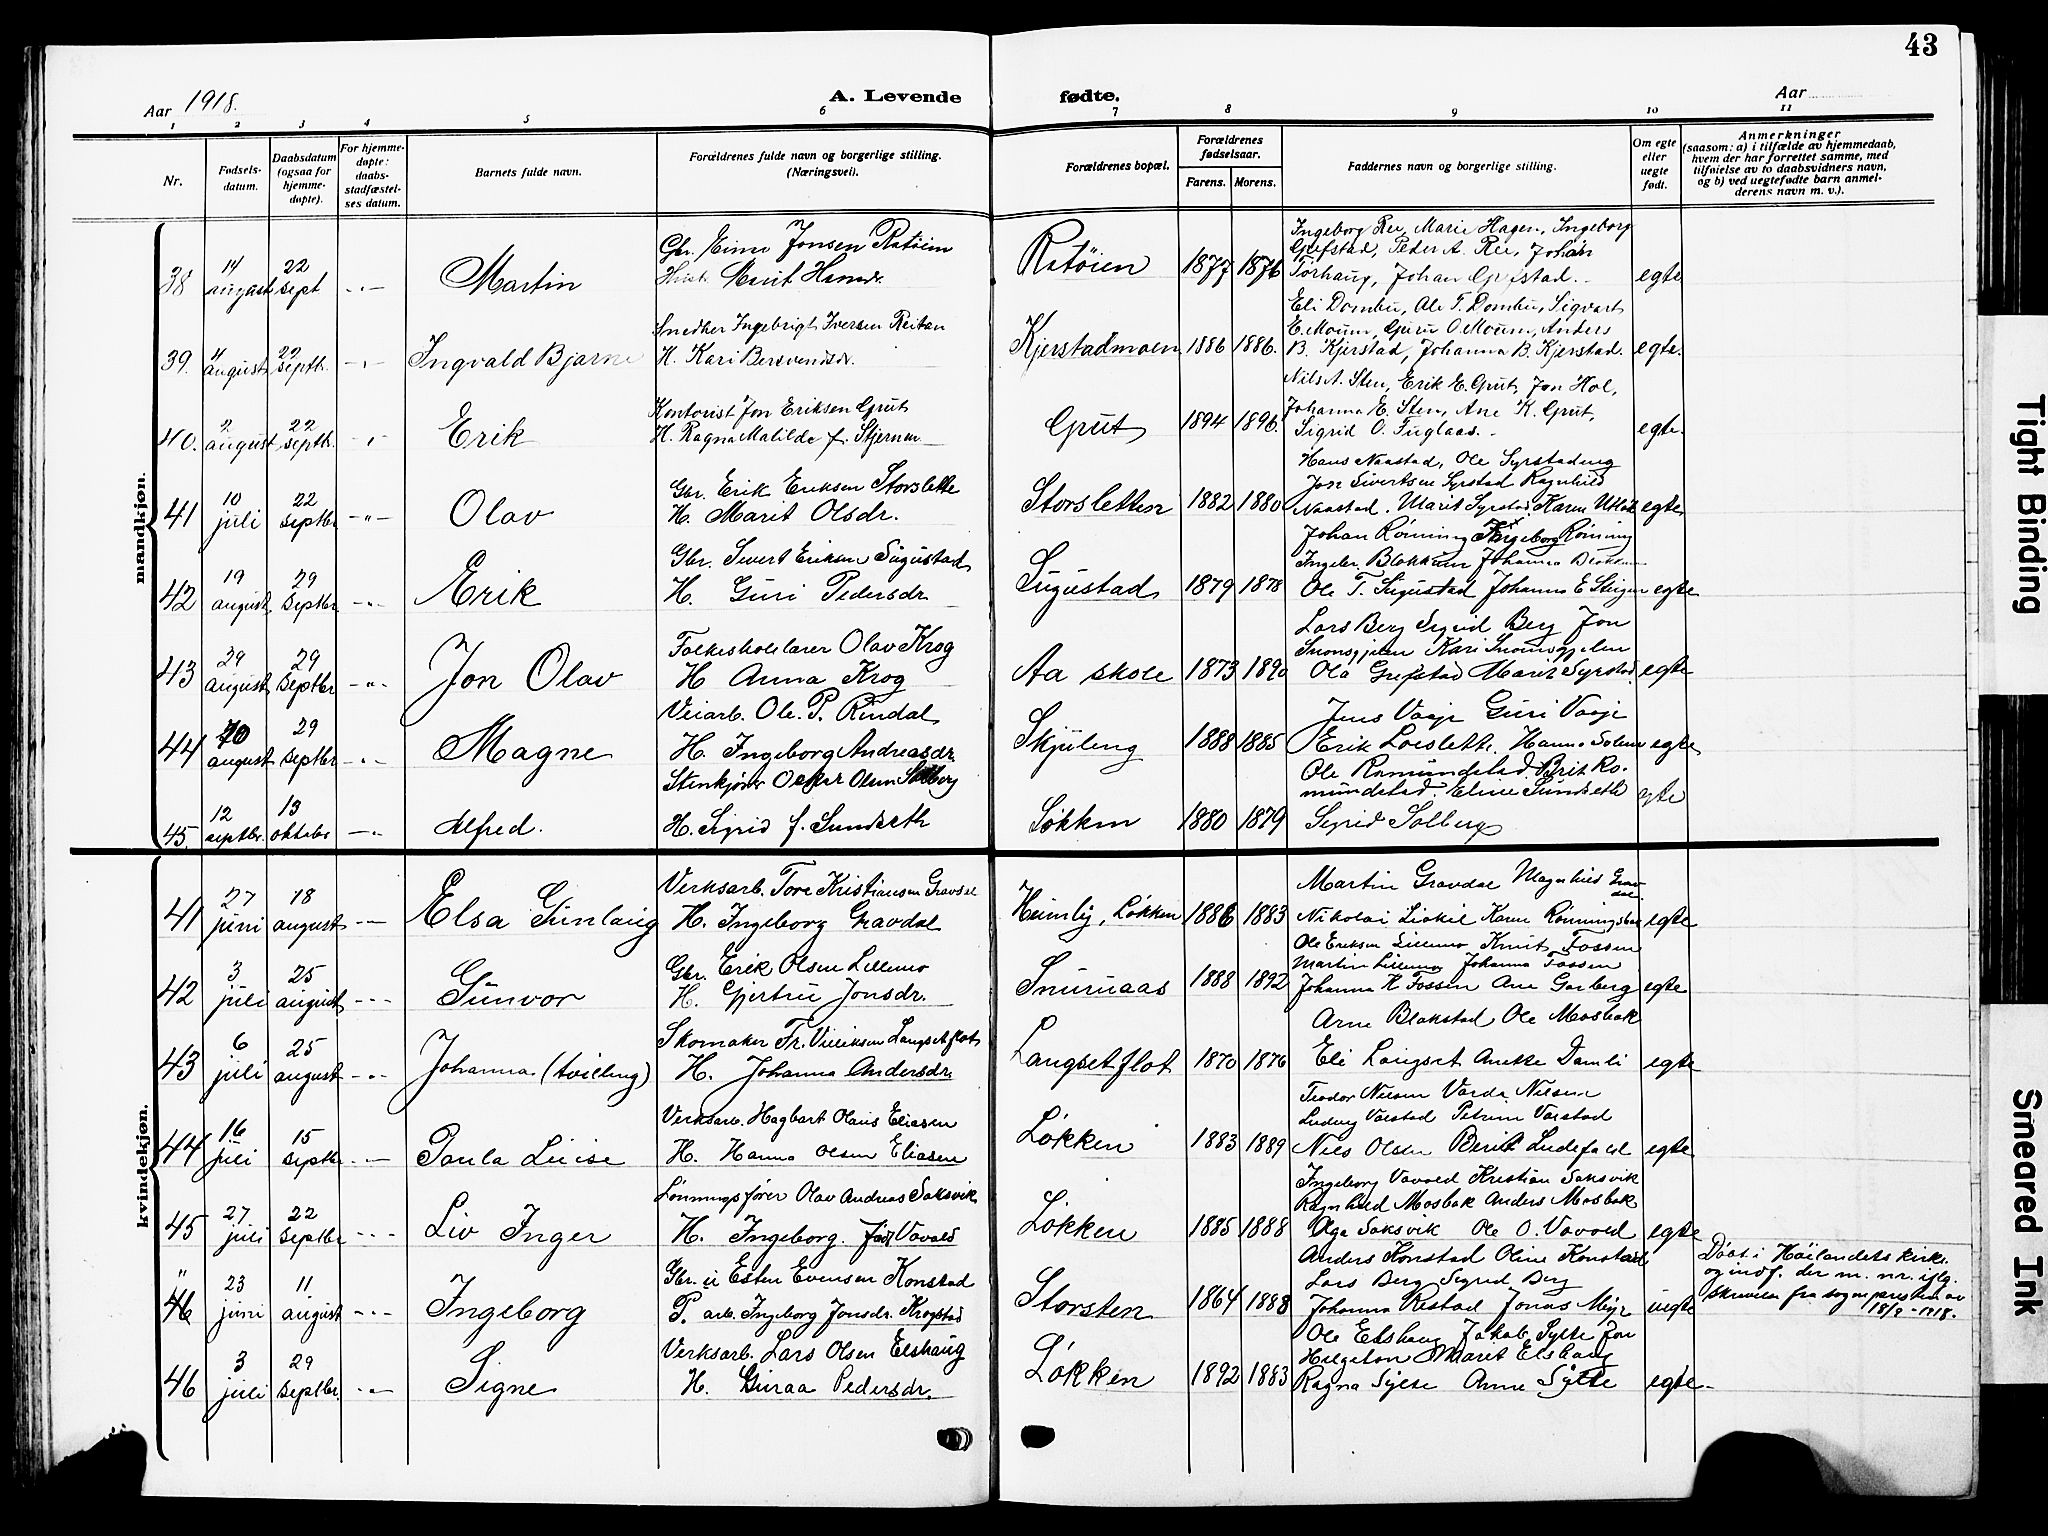 43
Aar 1918.
A. Levende fødte.
Aar
1 2 3 4 5 6 7 8 9 10 11
Nr.
Fødsels-
datum.
Daabsdatum
(ogsaa for
hjemme-
døpte).
For hjemme-
døpte:
daabs-
stadfæstel-
ses datum.
Barnets fulde navn.
Forældrenes fulde navn og borgerlige stilling.
(Næringsvei).
Forældrenes bopæl.
Forældrenes
fødselsaar.
Farens. Morens.
Faddernes navn og borgerlige stilling.
Om egte
eller
uegte
født.
Anmerkninger
(saasom: a) i tilfælde av hjemmedaab,
hvem der har forrettet samme, med
tilføielse av to daabsvidners navn,
og b) ved uegtefødte barn anmel-
derens navn m. v.).
mandkjøn.
38 14 august 22 sept Martin
Gbr. Einar Jonsen Ratøien
Marit
Ratøien 1877 1876
Ingeborg Ree, Marie Hagen, Ingeborg
Grefstad, Peder A. Ree, Johan
Torhaug, Johan Grefstad.
egte
39. 4 august 22 septbr. Ingvald Bjarne
Snedker Ingebrigt Iversen Reitan
H. Kari Bersvendsdr.
Kjerstadmoen 1886 1886.
Eli Dombu, Ole T. Dombu, Sigvart
E. Moum, Guru O. Moum, Anders
B. Kjerstad, Johanna B. Kjerstad.
egte.
40. 2 august 22 septbr. Erik
Kontorist Jon Eriksen Grut
H. Ragna Matilde f. Stjernen
Grut 1894 1896.
Nils A. Sten, Erik E. Grut, Jon Hol,
Johanna E. Sten, Ane K. Grut,
Sigrid O. Fuglaas.
egte.
41 10 juli 22 septbr Olav
Gbr. Erik Eriksen Storslette
H. Marit Olsdr.
Storsletten 1882 1880
Hans Naastad, Ole Syrstadeng
Jon Sivertsen Syrstad Ragnhild
Naastad. Marit Syrstad Karen
egte
42 19 august 29 septbr Erik
Gbr. Sivert Eriksen Sugustad
H. Guri Pedersdr
Sugustad 1879 1878
Johan Rønning Ingeborg Rønning
Ingebr. Blokkum Johanna
Ole T. Sugustad Johanna E
egte
43 29 august 29 septbr Jon Olav
Folkeskolelærer Olav Krog
H Anna Krog
Aa skole 1873 1890
Lars Berg Sigrid Berg Jon
Kari
Ola Grefstad Marit Syrstad
egte
44 august 29 septbr Magne
Veiarb. Ole. P. Rindal
H. Ingeborg Andreasdr.
Skjuleng 1888 1885
Jens Vaaje Guri Vaaje
Erik Hanna Solem
egte
45. 12 septbr. 13 oktobr Alfred.
Stenkjører Oskar Olsen Solberg
H. Sigrid f. Sundseth
Løkken 1880 1879
Ole Romundstad. Berit Ro-
mundstad. Eline Sundseth
Sigrid Solberg
egte
kvindekjøn.
41 27 juni 18 august Elsa Gunlaug
Verksarb. Tore Kristiansen Gravdal
H. Ingeborg Gravdal
Heimly, Løkken 1886 1883
Martin Gravdal Magnhild Grav-
dal
Nikolai Liakil Karen
egte
42 3 juli 25 august Gunvor
Gbr. Erik Olsen Lillemo
H. Gjertru Jonsdr.
Snuruaas 1888 1892
Ole Eriksen Lillemo Knut Fossen
Martin Lillemo Johanna Fossen
Johanna K Fossen Ane Garberg
egte
43 6 juli 25 august Johanna (tvilling)
Skomaker Fr. Langsetflot
H. Johanna Andersdr.
Langsetflot 1870 1876
Arne Blokstad Ole Mosbak
Eli Langset Anette Damli
egte
44 16 juli 15 septbr Paula Luise
Verksarb. Hagbart Olaus Eliasen
H. Hanna Olsen Eliasen
Løkken 1883 1889
Teodor Nilsen Varda Nilsen
Ludvig Vorstad Petrine Vorstad
Nils Olsen Berit
egte
45 27 juli 22 septbr Liv Inger
Lønningsfører Olav Andreas Saksvik
H. Ingeborg. født Vavold
Løkken 1885 1888
Ingeborg Vavold Kristian Saksvik
Ragnhild Mosbak Anders Mosbak
Olga Saksvik Ole O. Vavold
egte
" 46 23 juni 11 august Ingeborg
Gbr. u Esten Evensen Konstad
P. arb. Ingeborg Jonsdr. Krogstad
Storsten 1864 1888
Anders Konstad Oline Konstad
Lars Berg Sigrid Berg
Johanna Restad Jonas Meyr
uegte
Døbt i Høilandets kirke
og indf. der m. nr. iflg.
skrivelse fra sognepresten av
18/9 - 1918.
46 3 juli 29 septbr. Signe
Verksarb. Lars Olsen Elshaug
H. Guraa Pedersdr.
Løkken 1892 1883
Ole Elshaug Jakob Sylte Jon
Helgeton Marit Elshaug
Ragna Sylte Anne Sylte
egte
Tight Binding
Smeared Ink